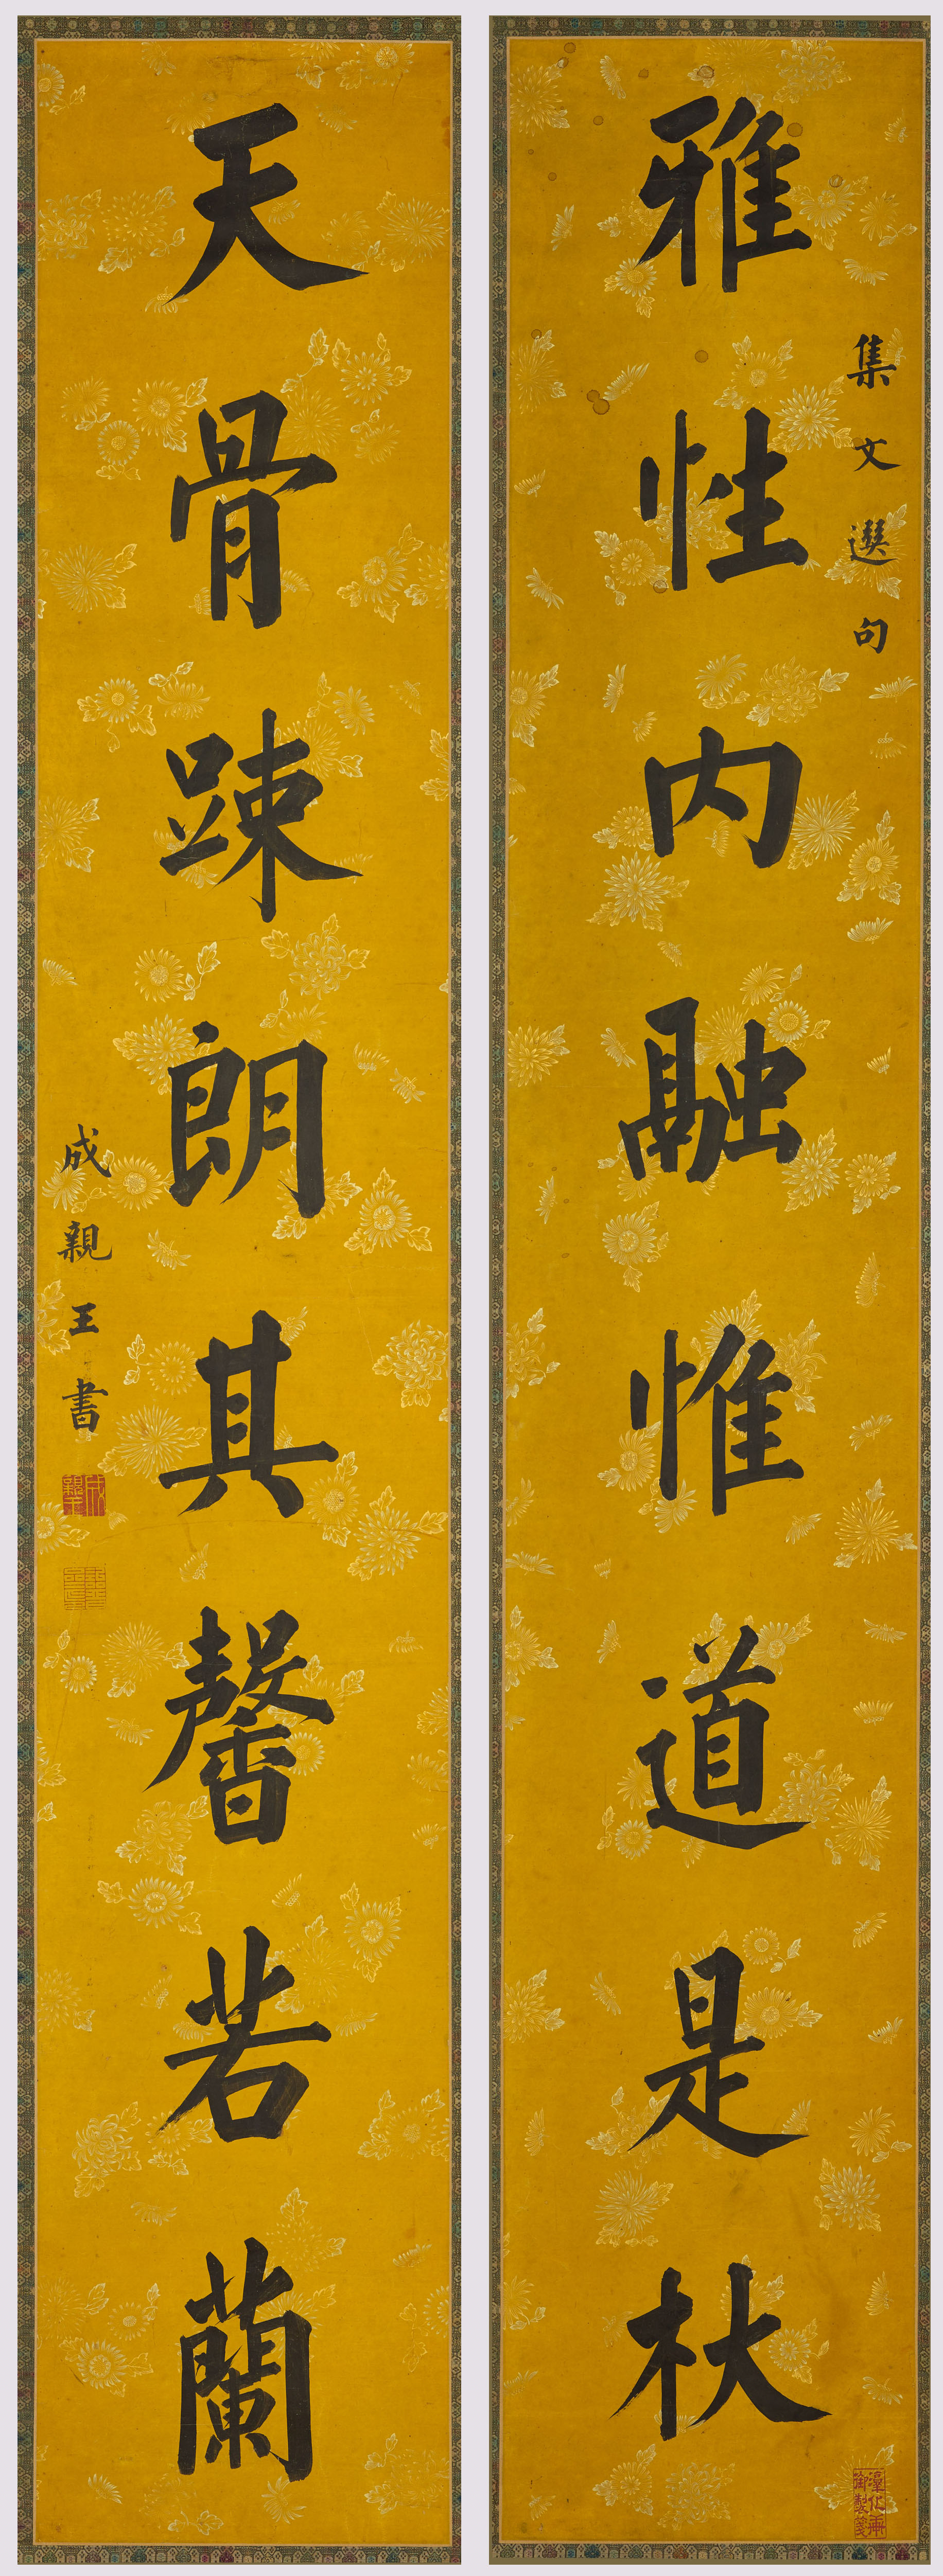 集文選句
雅性内融惟道是杖
天骨踈朗其馨若蘭
成親王書
成親王